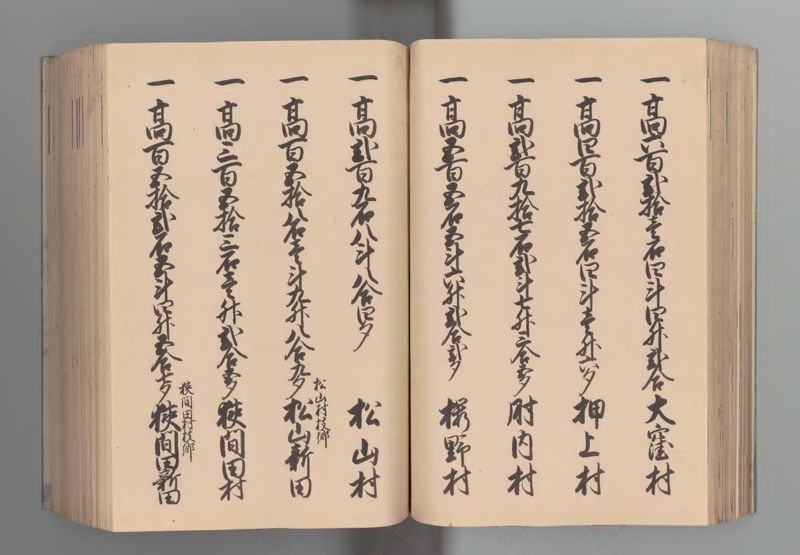 一 高六百弐拾壱石四斗四升弐合 大窪村
一 高四百弐拾五石四斗壱升六夕 押上村
一 高弐百九拾七石弐斗七升三合壱夕 肘内村
一 高五百五石五斗六升弐合弐夕 櫻野村
一 高弐百九石八斗八合四夕 松山村
松山村枝郷
一 高百五拾八石壱斗九升八合九夕 松山新田
一 高三百五拾三石壱升弐合壱夕 狹間田村
狹間田村枝郷
一 高百五拾弐石五斗四升五合七夕 狹間田新田